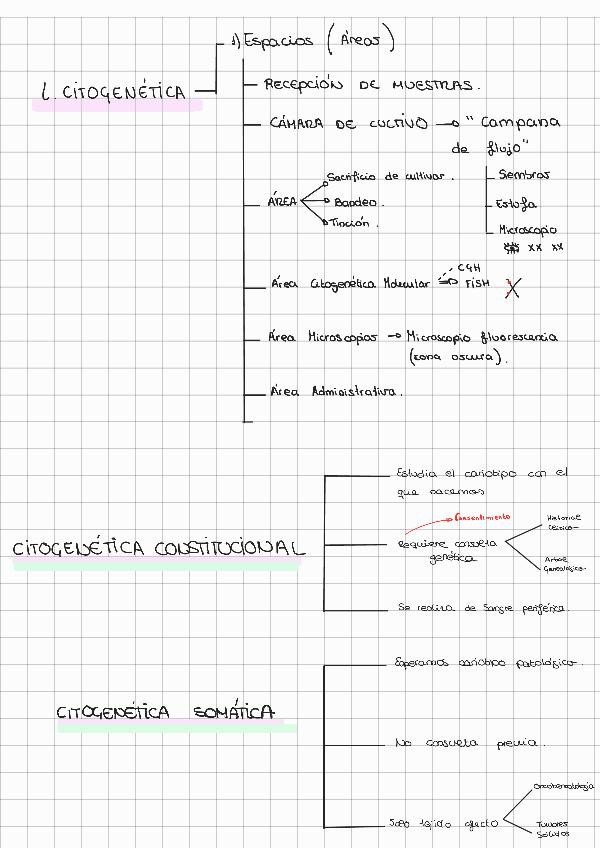 1) Espacios (Áreas)
L. CITOGENÉTICA
RECEPCIÓN DE MUESTRAS.
CÁMARA DE CULTIVO → "Campana
de flujo"
Siembras
Estufa
Microscopio
xx xx
ÁREA
Sacrificio de cultivar.
Bandeo.
Tinción.
Área Citogenética Molecular
CGH
FISH X
Área Microscopios → Microscopio fluorescencia
(zona oscura).
Área Administrativa.
CITOGENÉTICA CONSTITUCIONAL
Estudia el cariotipo con el
que nacemos
Consentimiento
Requiere consulta
genética
Historia
Clínica
Árbol
Genealógico
Se realiza de sangre periférica.
CITOGENÉTICA SOMÁTICA
Esperamos cariotipo patológico.
No consulta previa.
Solo tejido afecto
Oncohematología
Tumores
Sólidos